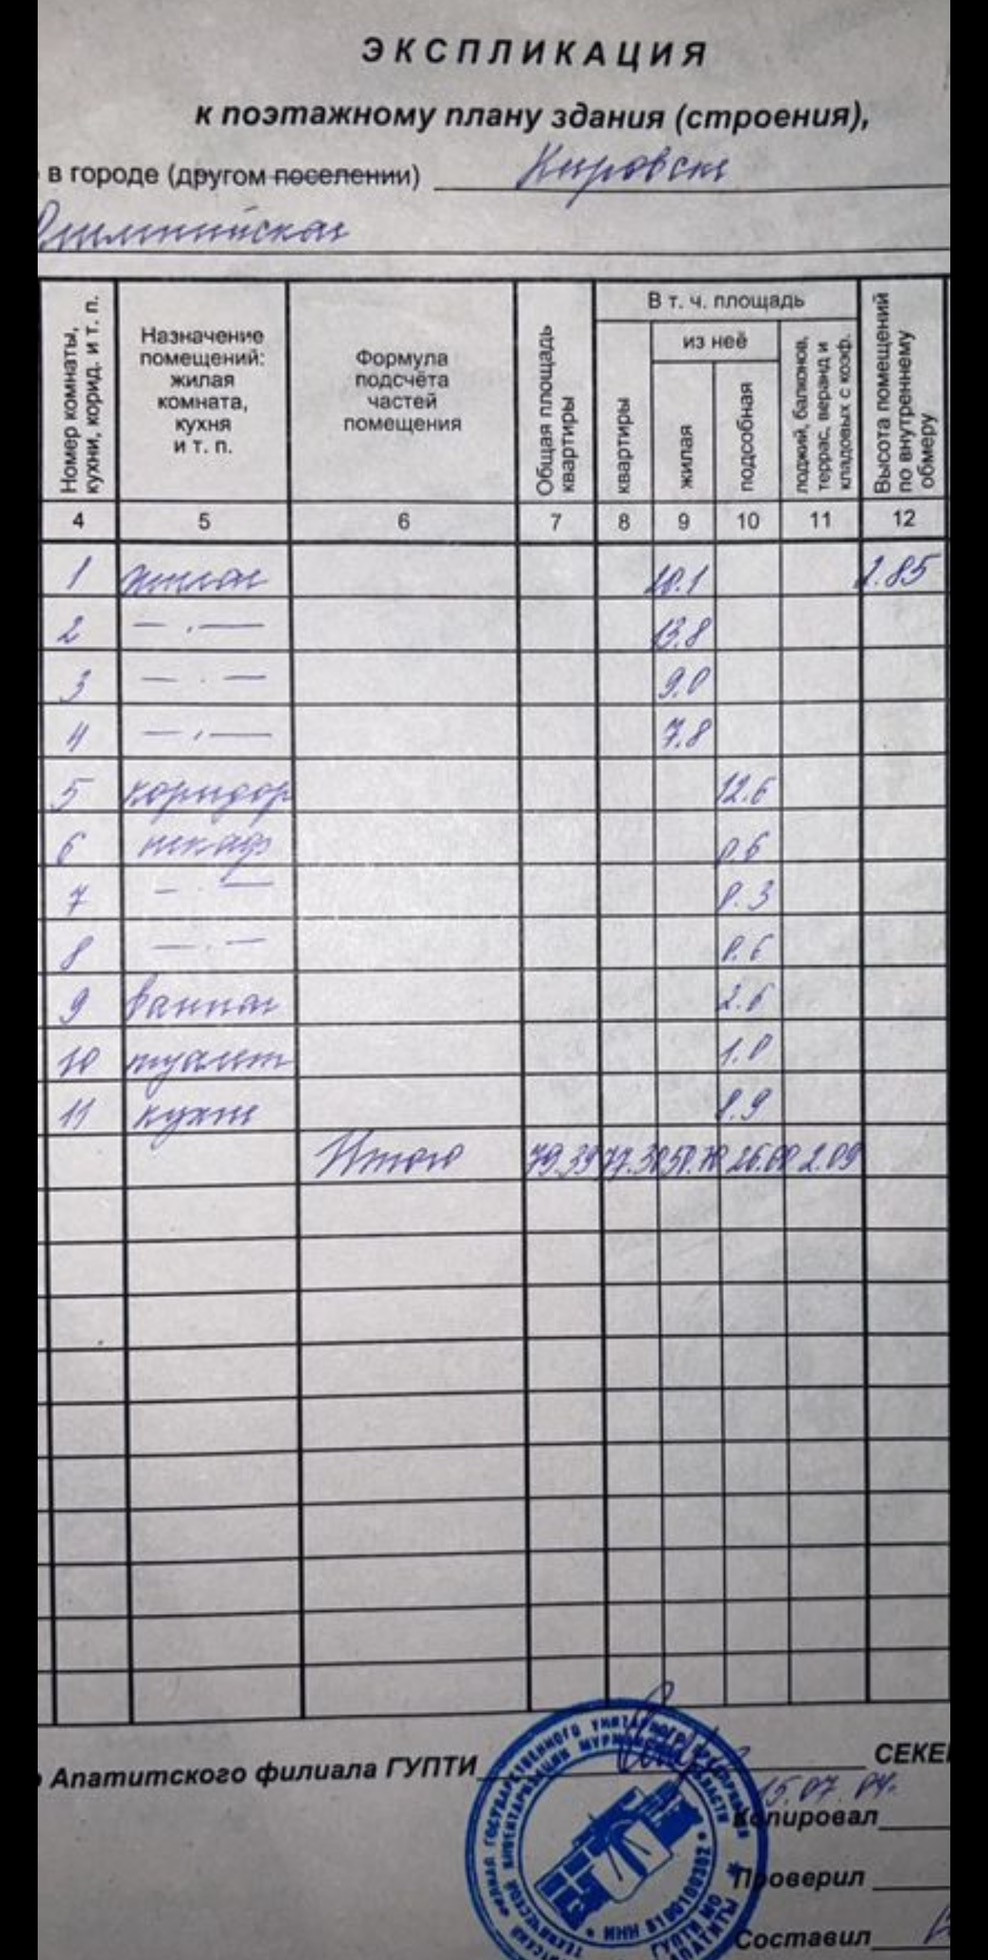 ЭКСПЛИКАЦИЯ
к поэтажному плану здания (строения),
в городе (другом поселении) Кировске
Олимпийская
Номер комнаты, кухни, корид. и т. п.
Назначение помещений: жилая комната, кухня и т. п.
Формула подсчёта частей помещения
Общая площадь квартиры
В т. ч. площадь
квартиры
из неё
жилая
подсобная
лоджий, балконов, террас, веранд и кладовых с коэф.
Высота помещений по внутреннему обмеру
4 5 6 7 8 9 10 11 12
1 жилая 20.1 2.85
2 — . — 13.8
3 — . — 9.0
4 — . — 7.8
5 коридор 12.6
6 шкаф 0.6
7 — . — 0.3
8 — . — 0.6
9 ванная 2.6
10 туалет 1.0
11 кухня 8.9
Итого 79.39 77.30 50.70 26.60 2.09
Апатитского филиала ГУПТИ СЕКЕ
15.07.04г.
Копировал
Проверил
Составил
ИНН 5100100302
ГУПТИ МО